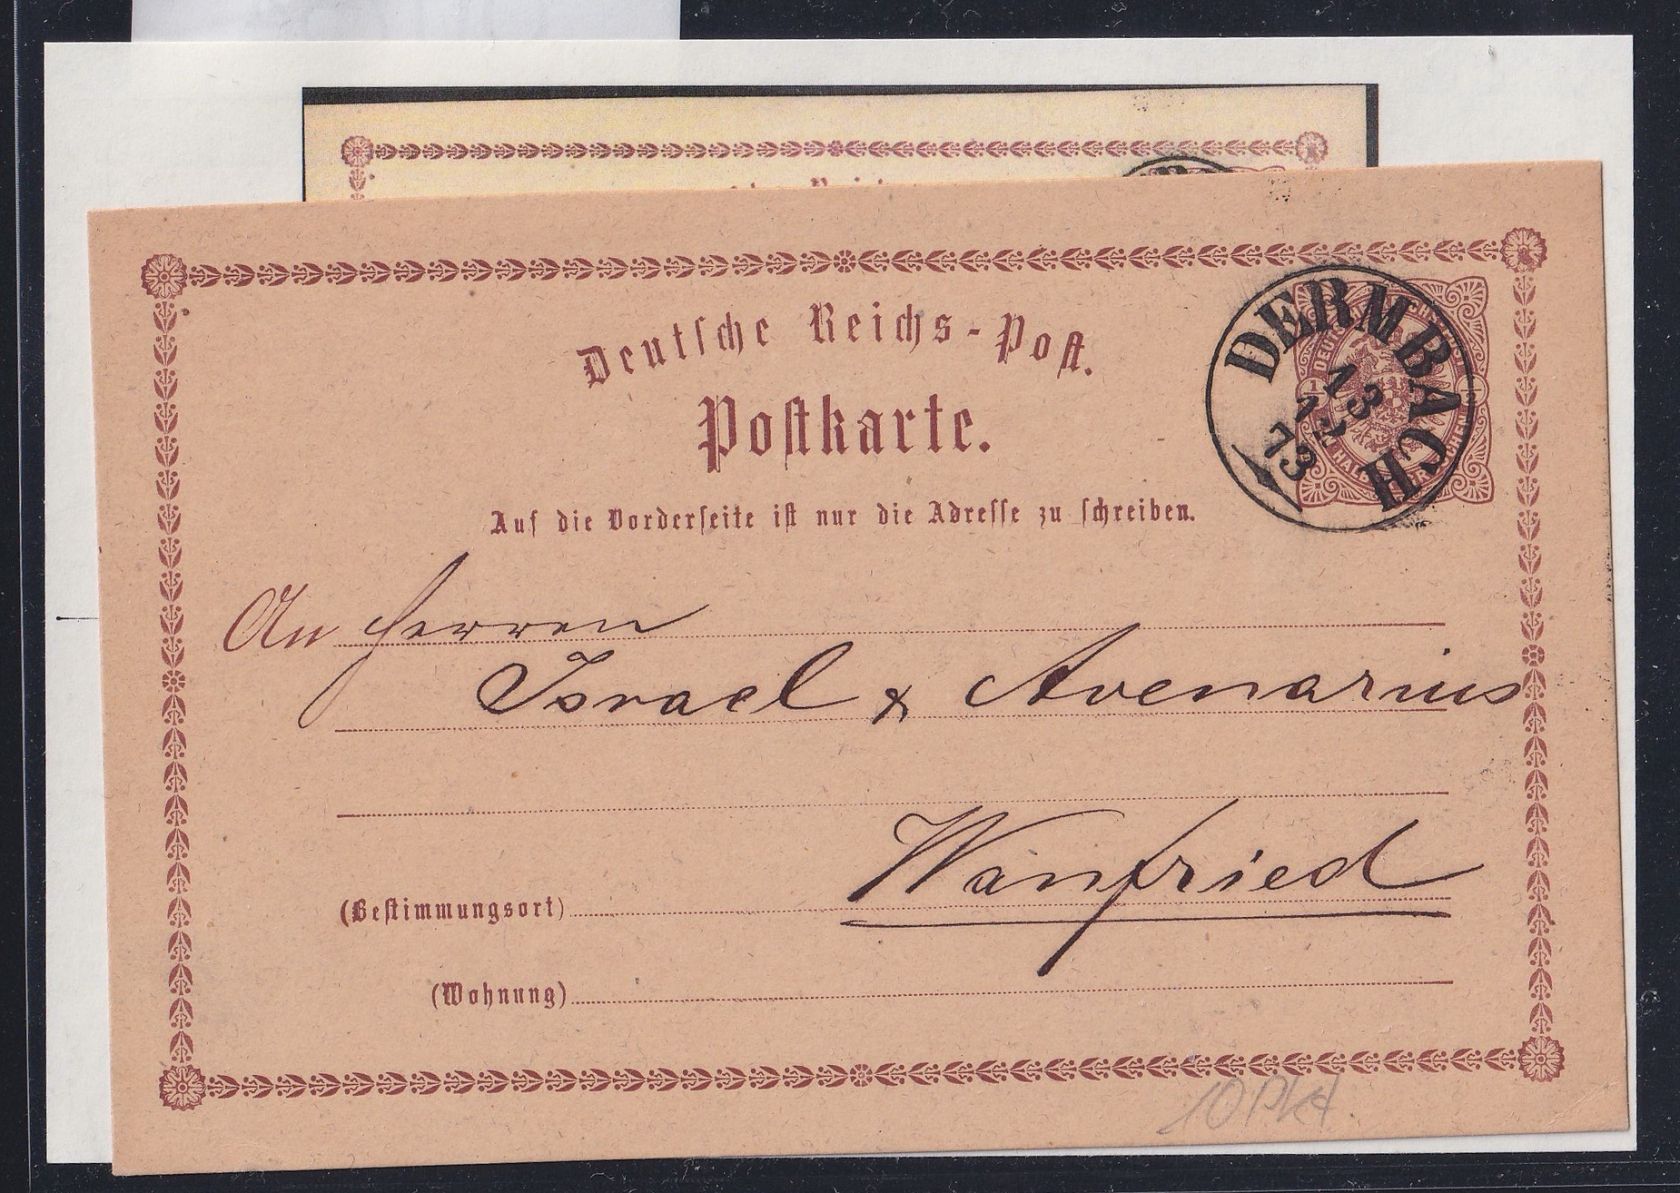 Deutsche Reichs-Post.
Postkarte.
Auf die Vorderseite ist nur die Adresse zu schreiben.
DERMBACH
13
12
73
An Herren
Israel & Avenarius
Wanfried
(Bestimmungsort)
(Wohnung)
10 Pkt.